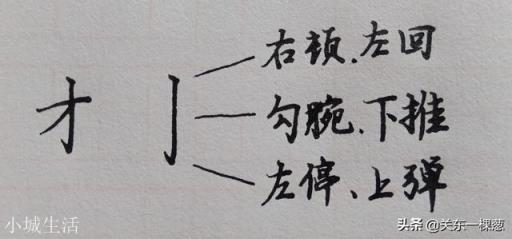 右顿、左回
才亅勾腕、下推
左停、上弹
小城生活
头条@关东一棵葱